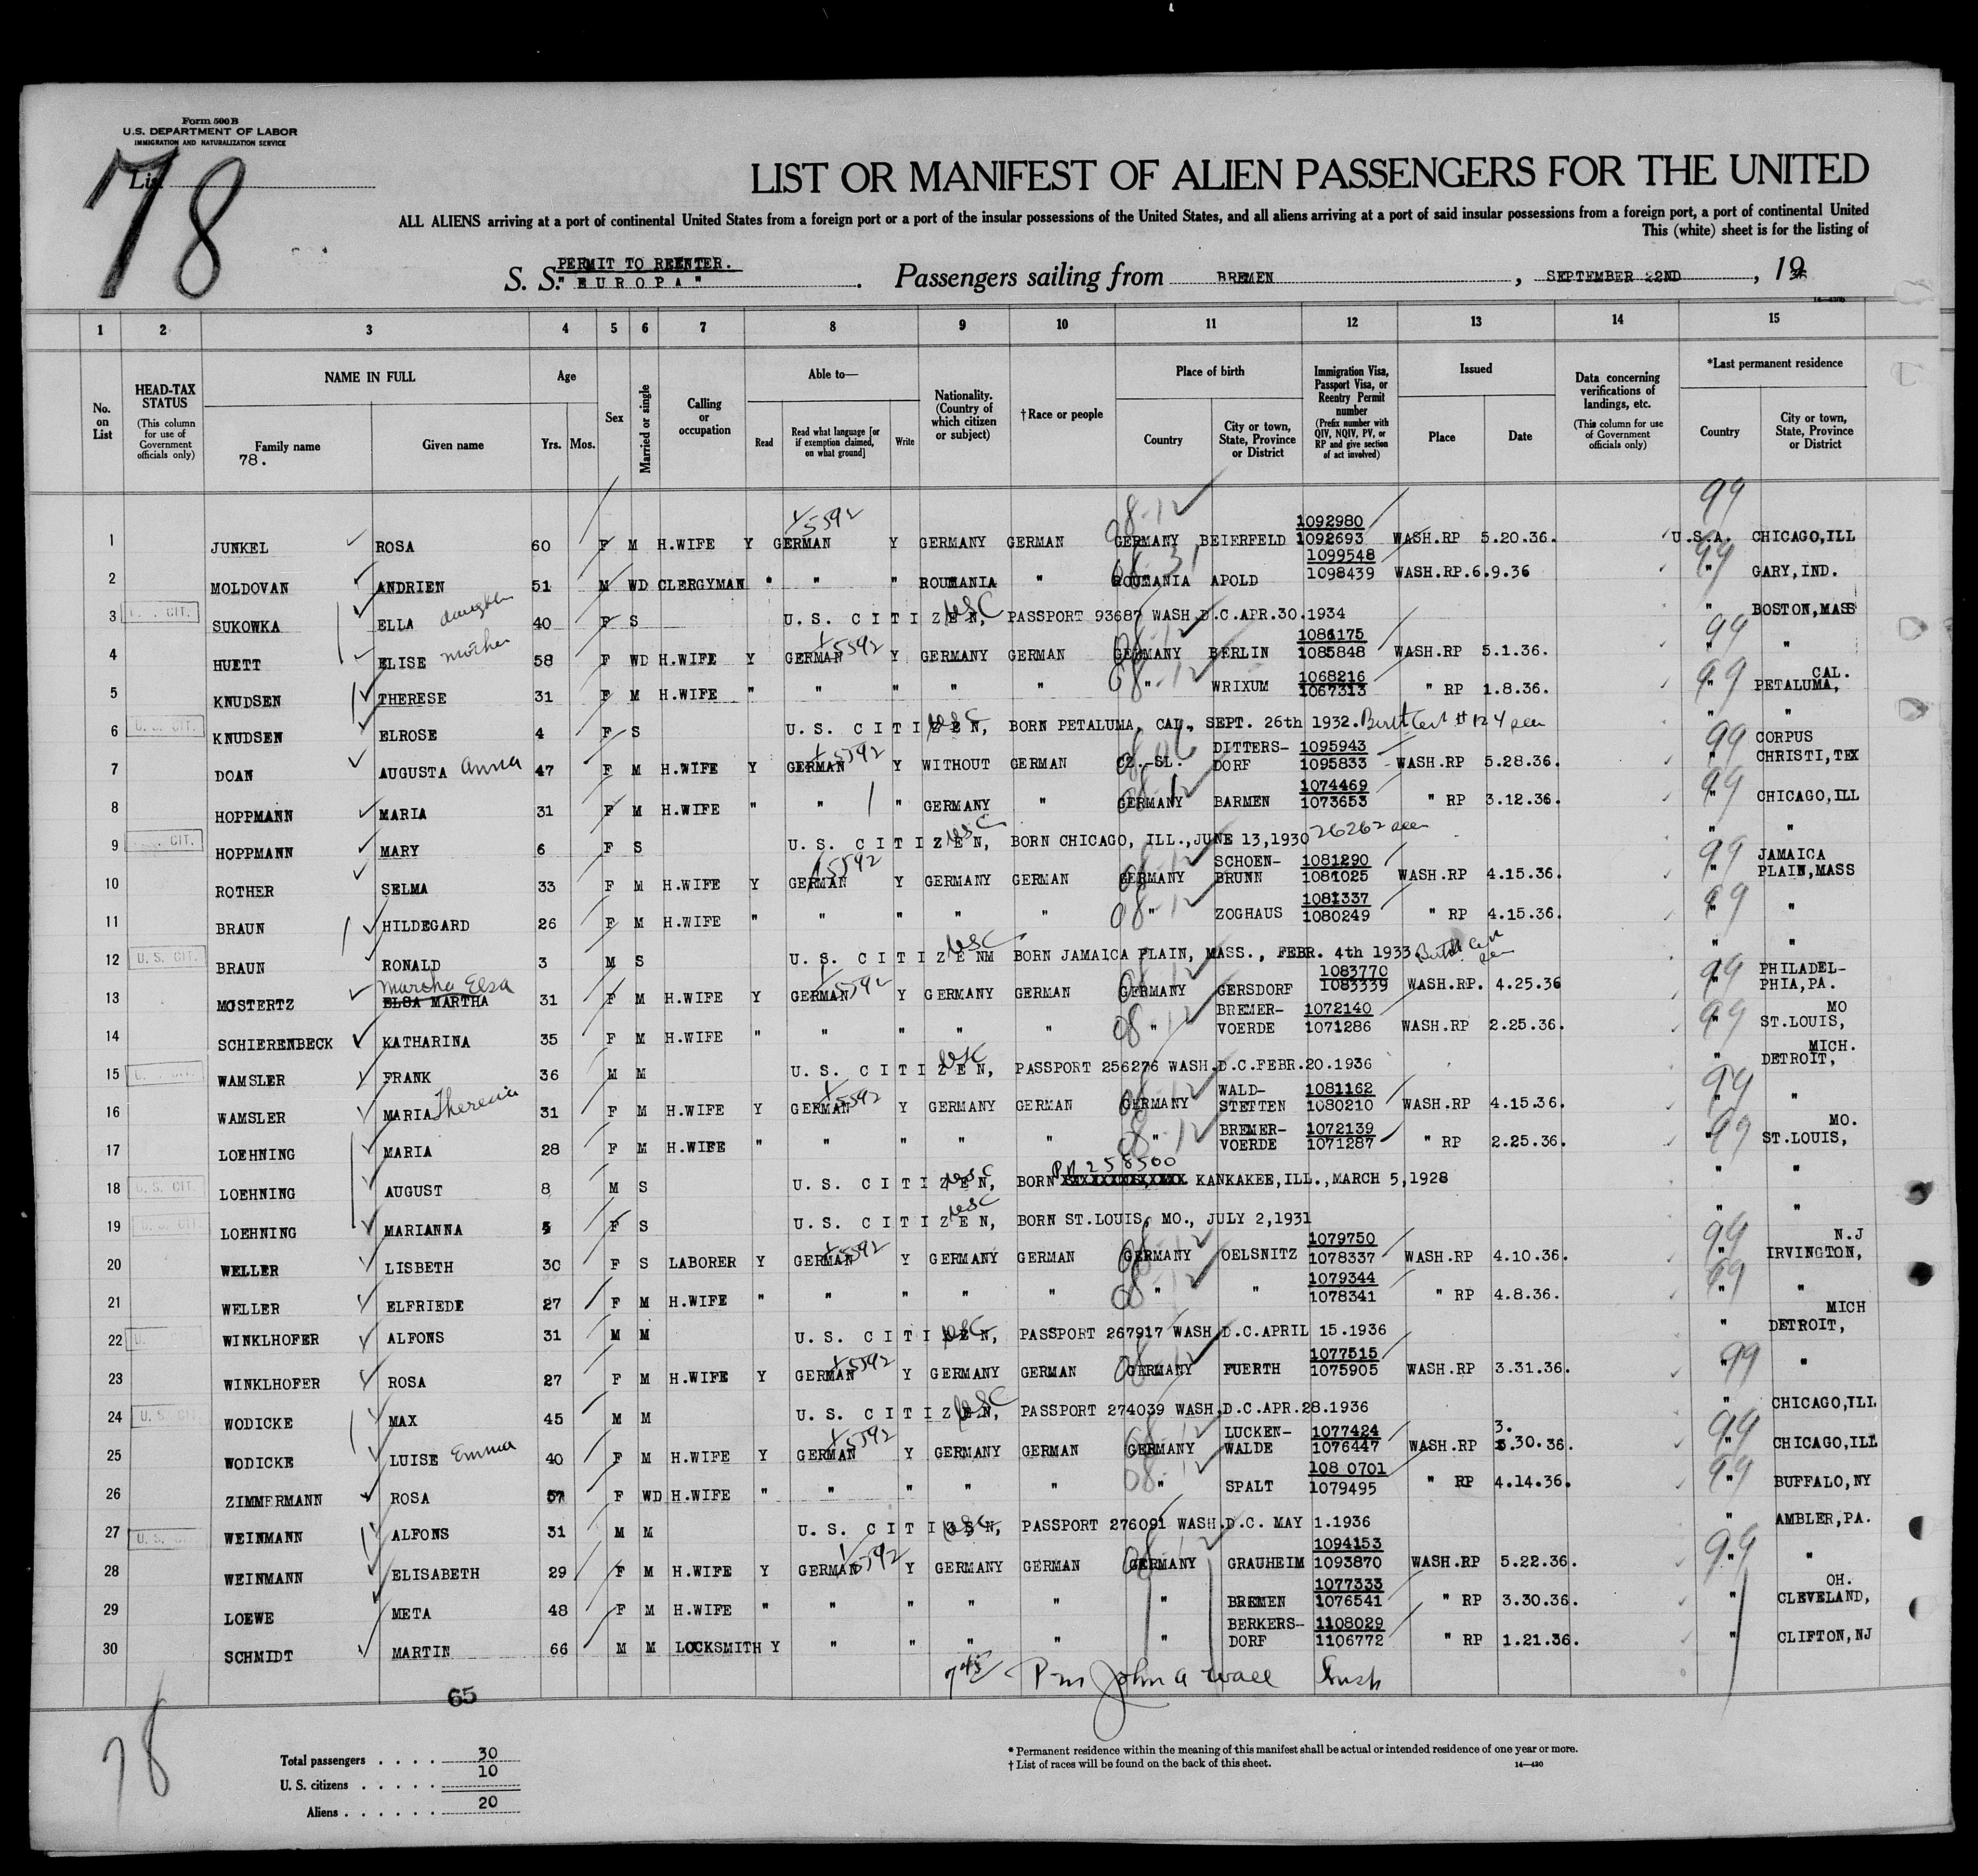 Form 500 B
U.S. DEPARTMENT OF LABOR
IMMIGRATION AND NATURALIZATION SERVICE
List
78
LIST OR MANIFEST OF ALIEN PASSENGERS FOR THE UNITED
ALL ALIENS arriving at a port of continental United States from a foreign port or a port of the insular possessions of the United States, and all aliens arriving at a port of said insular possessions from a foreign port, a port of continental United
This (white) sheet is for the listing of
PERMIT TO REENTER.
S. S. "EUROPA". Passengers sailing from BREMEN, SEPTEMBER 22ND, 1936
14-430b
1 2 3 4 5 6 7 8 9 10 11 12 13 14 15
No. on List
HEAD-TAX STATUS
(This column for use of Government officials only)
NAME IN FULL
Family name
78.
Given name
Age
Yrs. Mos.
Sex
Married or single
Calling or occupation
Able to—
Read
Read what language [or if exemption claimed, on what ground]
Write
Nationality. (Country of which citizen or subject)
†Race or people
Place of birth
Country
City or town, State, Province or District
Immigration Visa, Passport Visa, or Reentry Permit number
(Prefix number with QIV, NQIV, PV, or RP and give section of act involved)
Issued
Place
Date
Data concerning verifications of landings, etc.
(This column for use of Government officials only)
*Last permanent residence
Country
City or town, State, Province or District
1 JUNKEL ROSA 60 F M H.WIFE Y GERMAN X5592 Y GERMANY GERMAN 08-12 GERMANY BEIERFELD 1092980 1092693 WASH.RP 5.20.36. 99 U.S.A. CHICAGO,ILL
2 MOLDOVAN ANDRIEN 51 M WD CLERGYMAN " " " ROUMANIA " ROUMANIA APOLD 1099548 1098439 WASH.RP.6.9.36 99 " GARY,IND.
3 U.S. CIT. SUKOWKA ELLA daughter 40 F S U.S. CITIZEN, USC PASSPORT 93687 WASH.D.C.APR.30.1934 " BOSTON,MASS
4 HUETT ELISE mother 58 F WD H.WIFE Y GERMAN X5592 Y GERMANY GERMAN 08-12 GERMANY BERLIN 1086175 1085848 WASH.RP 5.1.36. 99 " "
5 KNUDSEN THERESE 31 F M H.WIFE " " " " " 08-12 " WRIXUM 1068216 1067313 " RP 1.8.36. 99 " CAL. PETALUMA,
6 U.S. CIT. KNUDSEN ELROSE 4 F S U.S. CITIZEN, USC BORN PETALUMA, CAL., SEPT. 26th 1932. Birth Cert # 124 seen " "
7 DOAN AUGUSTA Anna 47 F M H.WIFE Y GERMAN X5592 Y WITHOUT GERMAN CZ.-SL. DITTERS-DORF 1095943 1095833 WASH.RP 5.28.36. 99 " CORPUS CHRISTI,TEX
8 HOPPMANN MARIA 31 F M H.WIFE " " " GERMANY " 08-12 GERMANY BARMEN 1074469 1073653 " RP 3.12.36. 99 " CHICAGO,ILL
9 CIT. HOPPMANN MARY 6 F S U.S. CITIZEN, USC BORN CHICAGO, ILL.,JUNE 13,1930 26262 seen " "
10 ROTHER SELMA 33 F M H.WIFE Y GERMAN X5592 Y GERMANY GERMAN 08-12 GERMANY SCHOEN-BRUNN 1081290 1081025 WASH.RP 4.15.36. 99 " JAMAICA PLAIN,MASS
11 BRAUN HILDEGARD 26 F M H.WIFE " " " " " 08-12 " ZOGHAUS 1081337 1080249 " RP 4.15.36. 99 " "
12 U.S. CIT. BRAUN RONALD 3 M S U.S. CITIZENM USC BORN JAMAICA PLAIN, MASS., FEBR. 4th 1933 Birth Cert seen " "
13 MOSTERTZ Martha Elsa ELSA MARTHA 31 F M H.WIFE Y GERMAN X5592 Y GERMANY GERMAN 08-12 GERMANY GERSDORF 1083770 1083339 WASH.RP. 4.25.36 99 " PHILADEL-PHIA,PA.
14 SCHIERENBECK KATHARINA 35 F M H.WIFE " " " " " 08-12 " BREMER-VOERDE 1072140 1071286 WASH.RP 2.25.36. 99 " MO ST.LOUIS,
15 WAMSLER FRANK 36 M M U.S. CITIZEN, USC PASSPORT 256276 WASH.D.C.FEBR.20.1936 " MICH. DETROIT,
16 WAMSLER MARIA Theresia 31 F M H.WIFE Y GERMAN X5592 Y GERMANY GERMAN 08-12 GERMANY WALD-STETTEN 1081162 1080210 WASH.RP 4.15.36. 99 " "
17 LOEHNING MARIA 28 F M H.WIFE " " " " " 08-12 " BREMER-VOERDE 1072139 1071287 " RP 2.25.36. 99 " MO. ST.LOUIS,
18 U.S. CIT. LOEHNING AUGUST 8 M S U.S. CITIZEN, USC BORN PP 258500 KANKAKEE,ILL.,MARCH 5,1928 " "
19 U.S. CIT. LOEHNING MARIANNA 5 F S U.S. CITIZEN, USC BORN ST.LOUIS, MO., JULY 2,1931 " "
20 WELLER LISBETH 30 F S LABORER Y GERMAN X5592 Y GERMANY GERMAN 08-12 GERMANY OELSNITZ 1079750 1078337 WASH.RP 4.10.36. 99 " N.J IRVINGTON,
21 WELLER ELFRIEDE 27 F M H.WIFE " " " " " 08-12 " " 1079344 1078341 " RP 4.8.36. 99 " "
22 WINKLHOFER ALFONS 31 M M U.S. CITIZEN, USC PASSPORT 267917 WASH.D.C.APRIL 15.1936 " MICH DETROIT,
23 WINKLHOFER ROSA 27 F M H.WIFE Y GERMAN X5592 Y GERMANY GERMAN 08-12 GERMANY FUERTH 1077515 1075905 WASH.RP 3.31.36. 99 " "
24 U.S. CIT. WODICKE MAX 45 M M U.S. CITIZEN, USC PASSPORT 274039 WASH.D.C.APR.28.1936 " CHICAGO,ILL
25 WODICKE LUISE Emma 40 F M H.WIFE Y GERMAN X5592 Y GERMANY GERMAN 08-12 GERMANY LUCKEN-WALDE 1077424 1076447 WASH.RP 3.30.36. 99 " CHICAGO,ILL
26 ZIMMERMANN ROSA 57 F WD H.WIFE " " " " " 08-12 " SPALT 108 0701 1079495 " RP 4.14.36. 99 " BUFFALO,NY
27 U.S. CIT. WEINMANN ALFONS 31 M M U.S. CITIZEN, USC PASSPORT 276091 WASH.D.C. MAY 1.1936 " AMBLER,PA.
28 WEINMANN ELISABETH 29 F M H.WIFE Y GERMAN X5592 Y GERMANY GERMAN 08-12 GERMANY GRAUHEIM 1094153 1093870 WASH.RP 5.22.36. 99 " "
29 LOEWE META 48 F M H.WIFE " " " " " " BREMEN 1077333 1076541 " RP 3.30.36. " OH. CLEVELAND,
30 SCHMIDT MARTIN 66 M M LOCKSMITH Y " " " " " BERKERS-DORF 1108029 1106772 " RP 1.21.36. " CLIFTON,NJ
7 45 Pm John A Wall Insp
65
78
Total passengers . . . . 30
U. S. citizens . . . . . 10
Aliens . . . . . . 20
* Permanent residence within the meaning of this manifest shall be actual or intended residence of one year or more.
† List of races will be found on the back of this sheet.
14—430